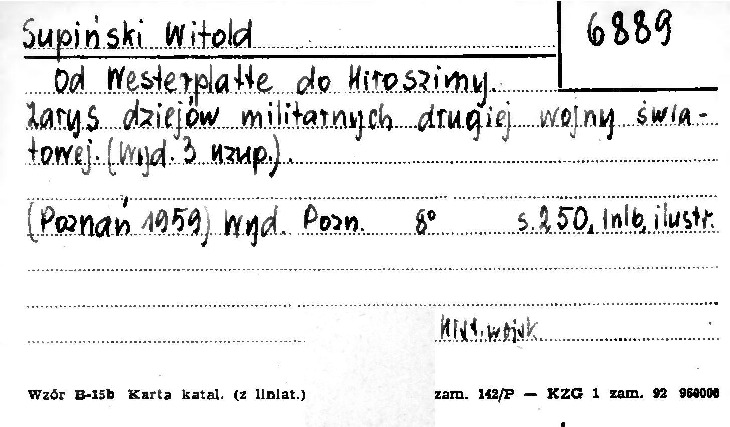 Supiński Witold
6889
Od Westerplatte do Hiroszimy.
Zarys dziejów militarnych drugiej wojny świa-
towej. (Wyd. 3 uzup.).
(Poznań 1959) Wyd. Pozn. 8° s. 250, 1nlb, ilustr.
Hist. wojsk.
Wzór B-15b Karta katal. (z liniat.) zam. 142/P — KZG 1 zam. 92 960000